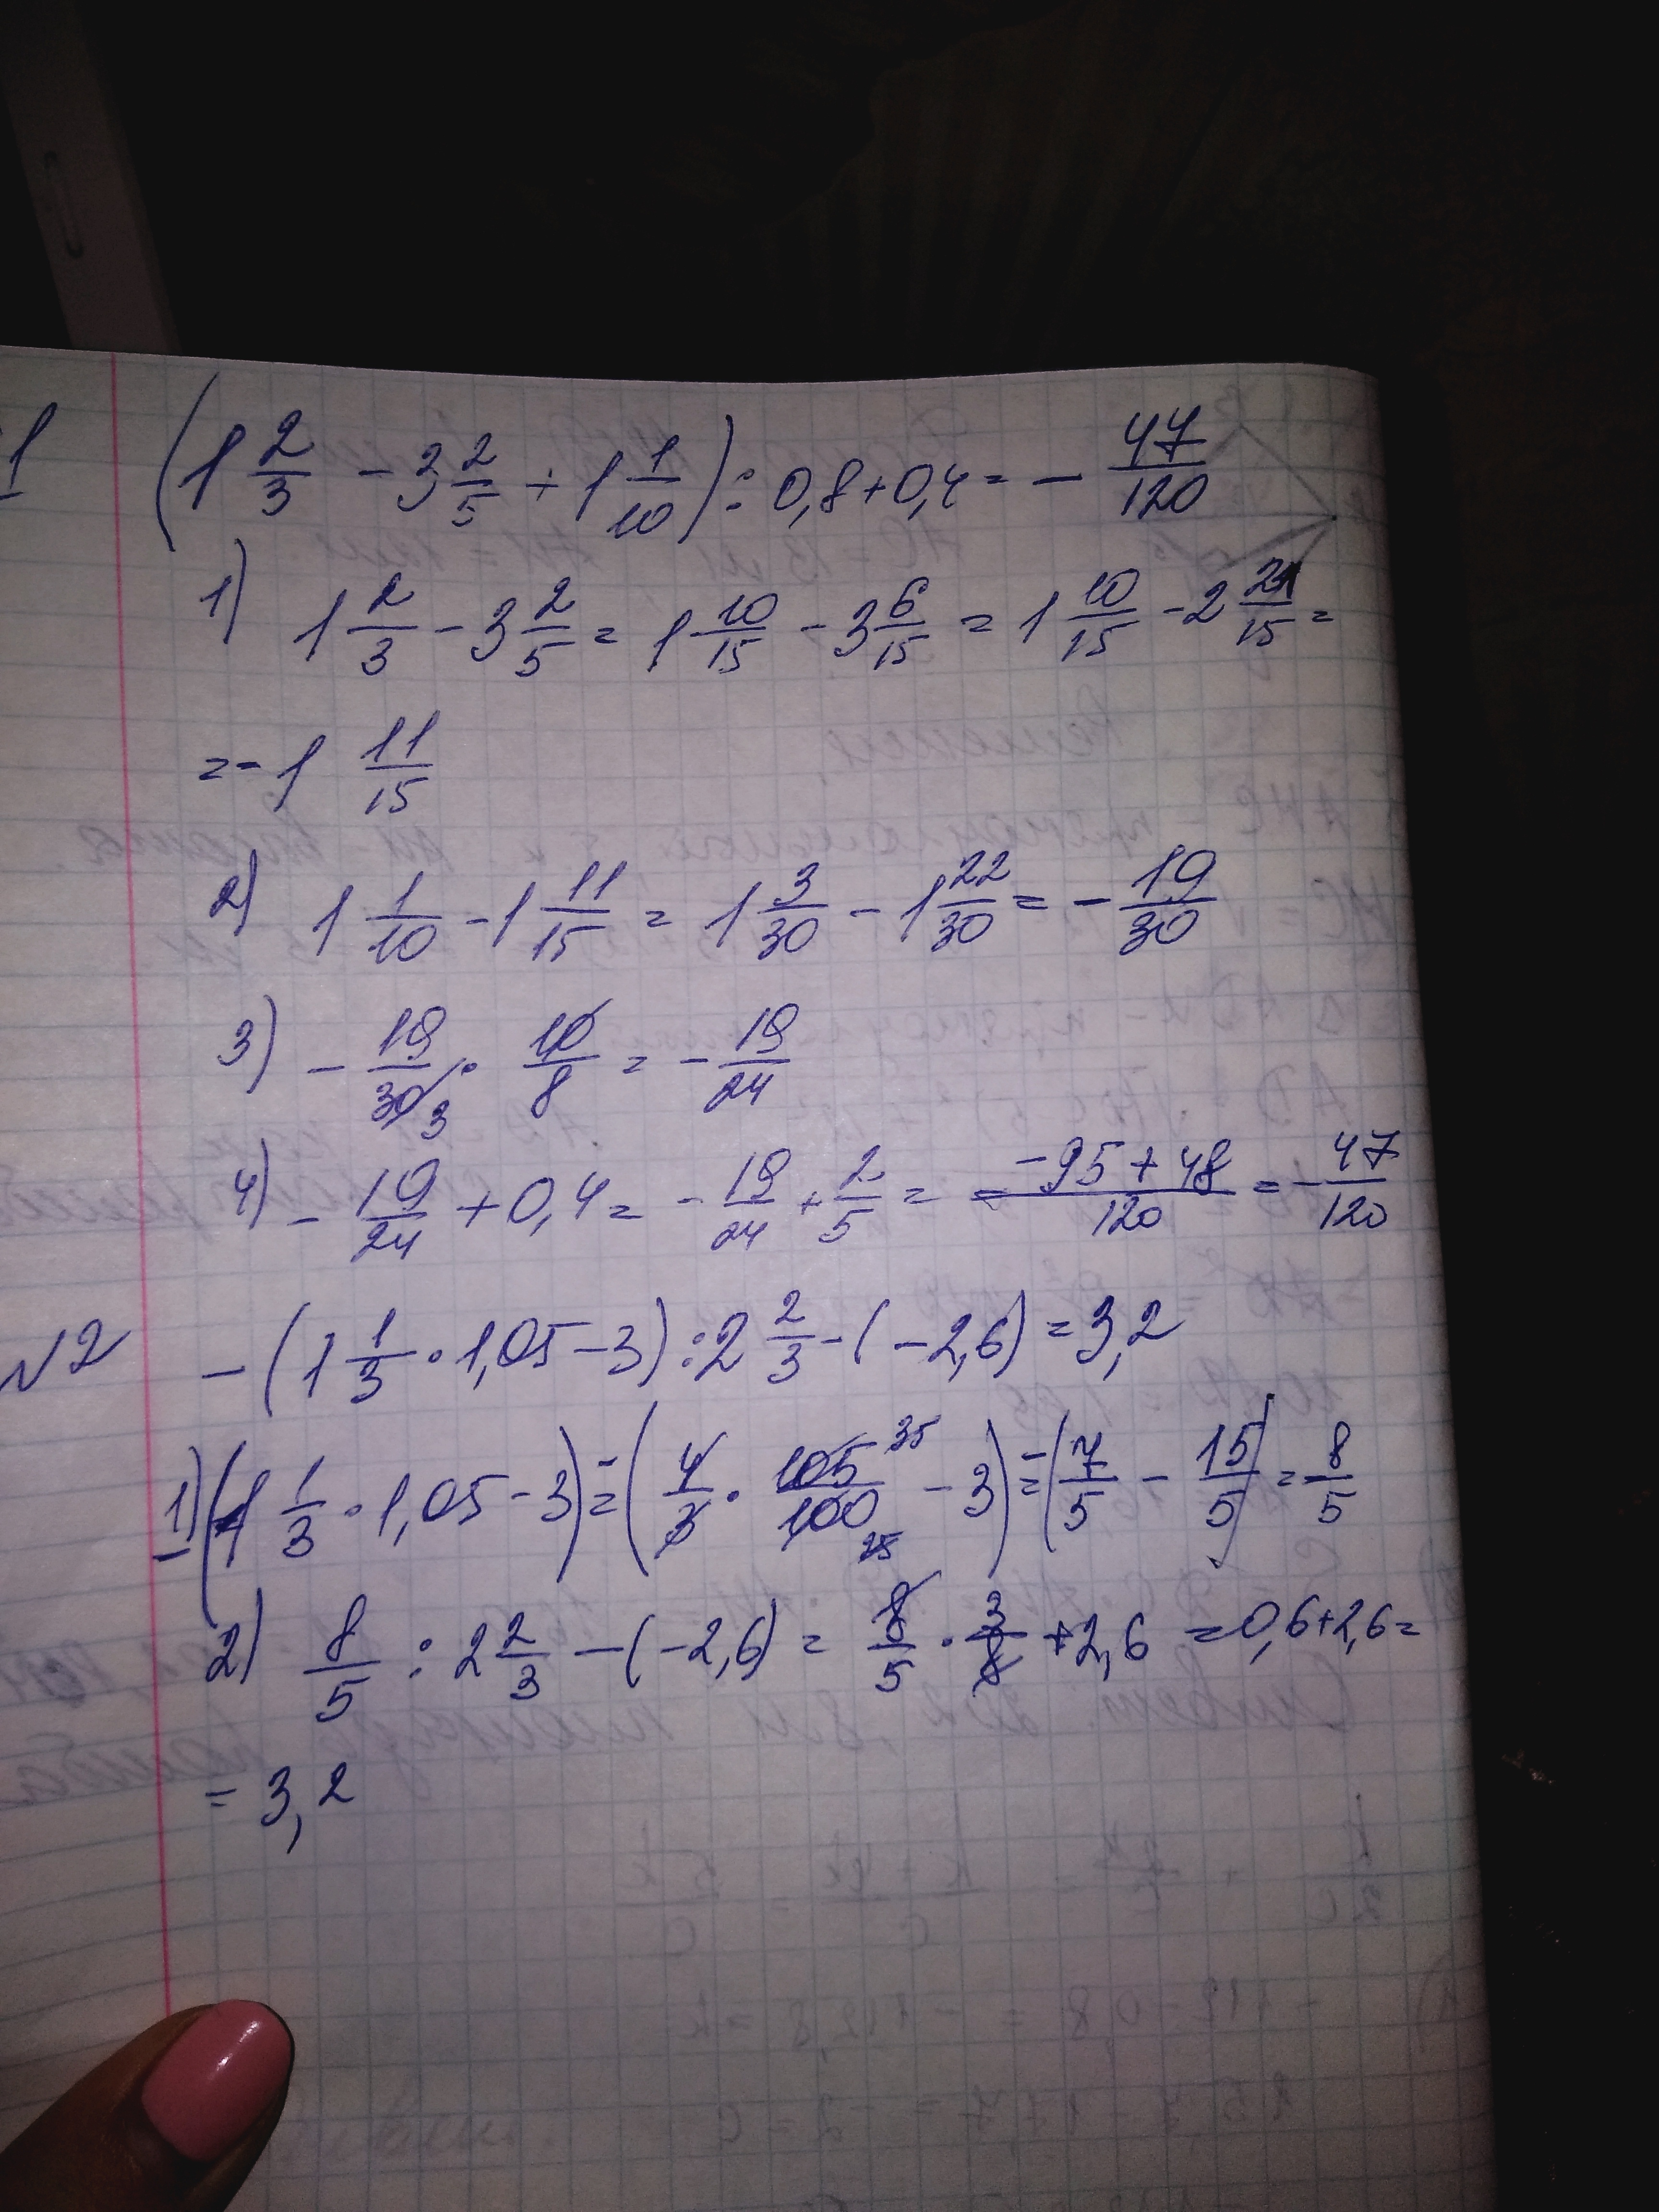 1 (1 2/3 - 3 2/5 + 1 1/10) : 0,8 + 0,4 = - 47/120
1) 1 2/3 - 3 2/5 = 1 10/15 - 3 6/15 = 1 10/15 - 2 21/15 =
= - 1 11/15
2) 1 1/10 - 1 11/15 = 1 3/30 - 1 22/30 = - 19/30
3) - 19/30 3 · 10/8 = - 19/24
4) - 19/24 + 0,4 = - 19/24 + 2/5 = = -95 + 48/120 = - 47/120
N2 - (1 1/3 · 1,05 - 3) : 2 2/3 - (-2,6) = 3,2
1) -(1 1/3 · 1,05 - 3) = -(4/3 · 105 35/100 25 - 3) = -(7/5 - 15/5) = 8/5
2) 8/5 : 2 2/3 - (-2,6) = 8/5 · 3/8 + 2,6 = 0,6 + 2,6 =
= 3,2